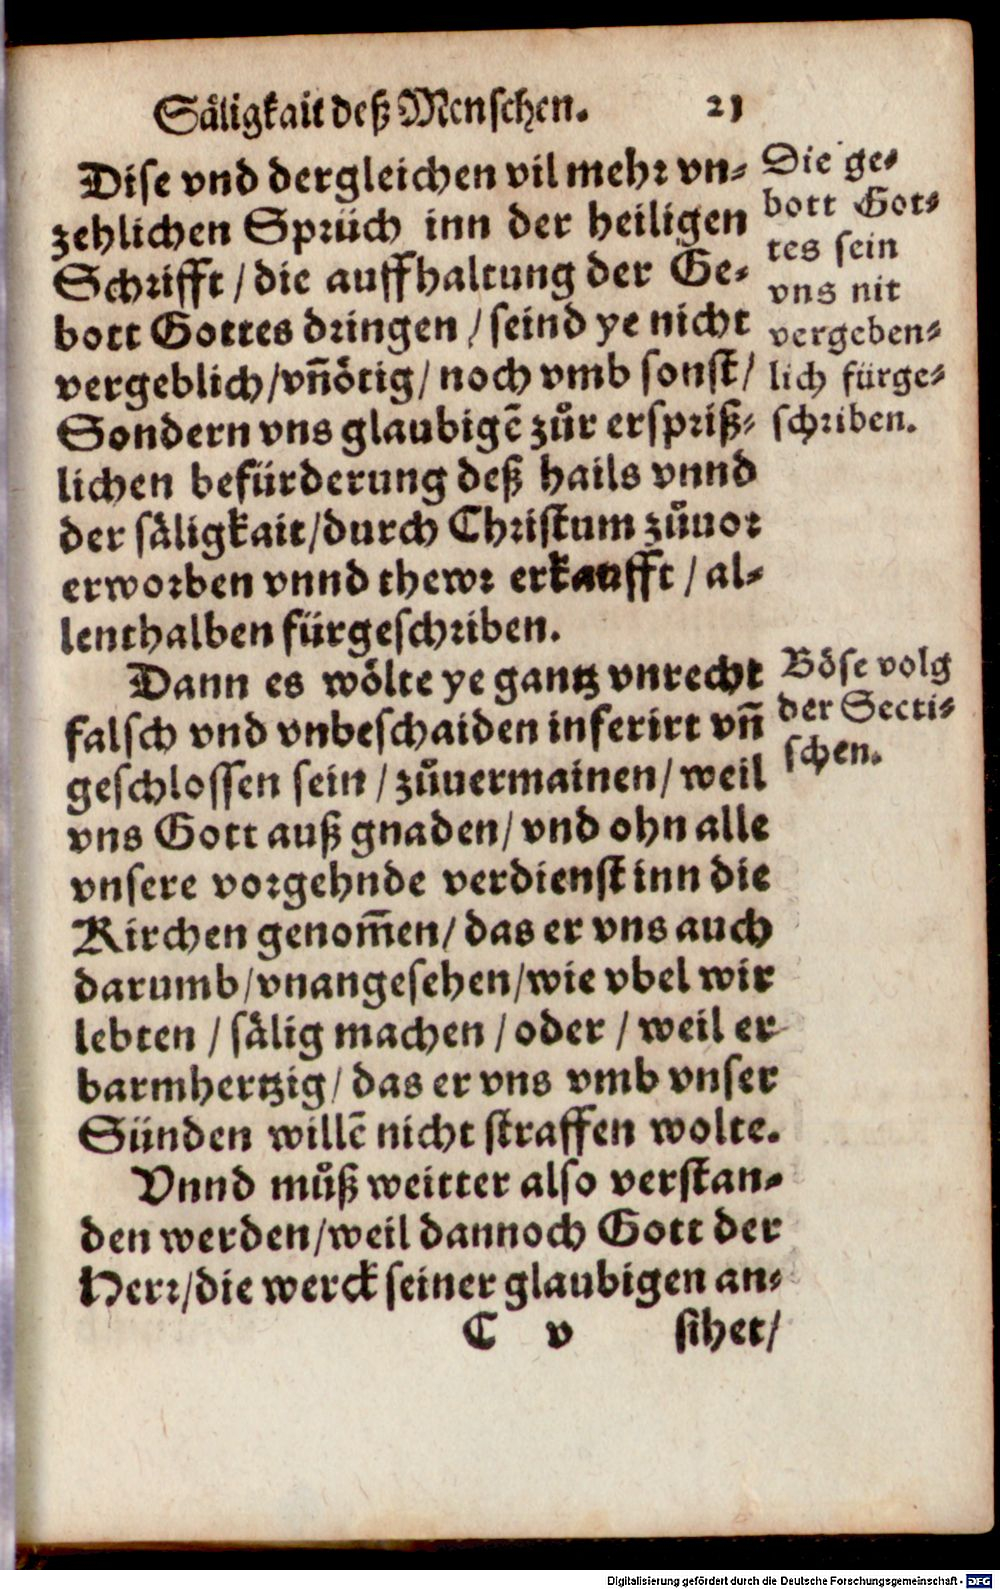 Säligkait deß Menschen. 21
Dise vnd dergleichen vil mehr vn⸗
zehlichen Sprüch inn der heiligen
Schrifft / die auffhaltung der Ge⸗
bott Gottes dringen / seind ye nicht
vergeblich/vñnötig/ noch vmb sonst/
Sondern vns glaubigẽ zůr ersprißz⸗
lichen befürderung deß hails vnnd
der säligkait/durch Christum zůuor
erworben vnnd thewr erkaufft / al⸗
lenthalben fürgeschriben.
Die ge⸗
bott Got⸗
tes sein
vns nit
vergeben⸗
lich fürge⸗
schriben.
Dann es wölte ye gantz vnrecht
falsch vnd vnbeschaiden inferirt vñ
geschlossen sein / zůuermainen/ weil
vns Gott auß gnaden/ vnd ohn alle
vnsere vorgehnde verdienst inn die
Kirchen genom̃en/ das er vns auch
darumb/vnangesehen/wie vbel wir
lebten / sälig machen / oder / weil er
barmhertzig/ das er vns vmb vnser
Sünden willẽ nicht straffen wolte.
Böse volg
der Secti⸗
schen.
Vnnd můß weitter also verstan⸗
den werden/weil dannoch Gott der
Herr/die werck seiner glaubigen an⸗
C v sihet/
Digitalisierung gefördert durch die Deutsche Forschungsgemeinschaft - DFG